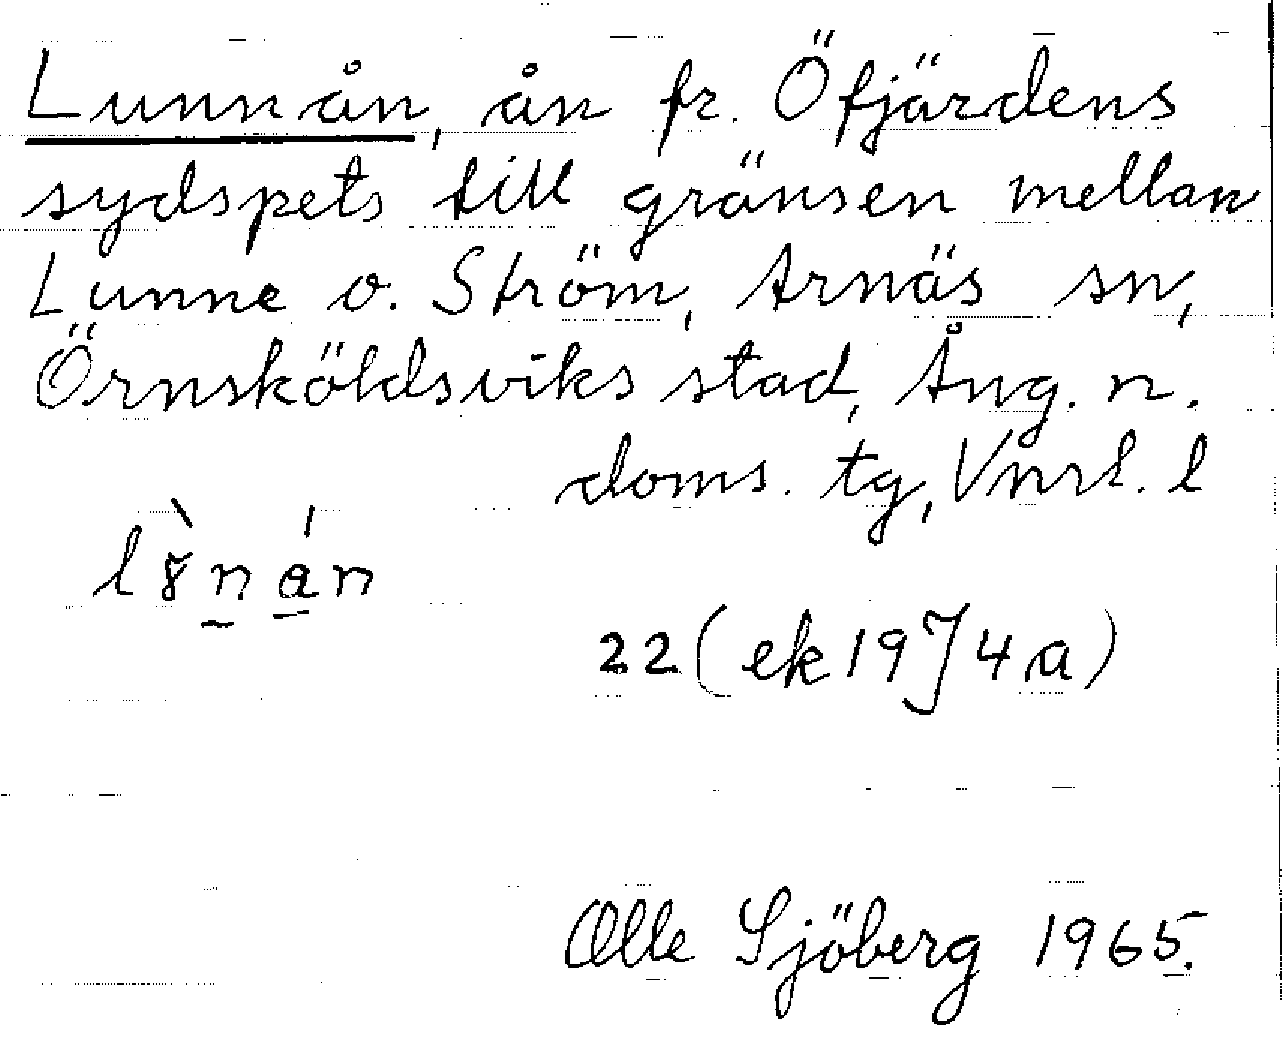 Lunnån, ån fr. Öfjärdens
sydspets till gränsen mellan
Lunne o. Ström, Arnäs sn,
Örnsköldsviks stad, Ång. n.
doms. tg, Vnrl. l
22 (ek 19J4a)
Olle Sjöberg 1965.